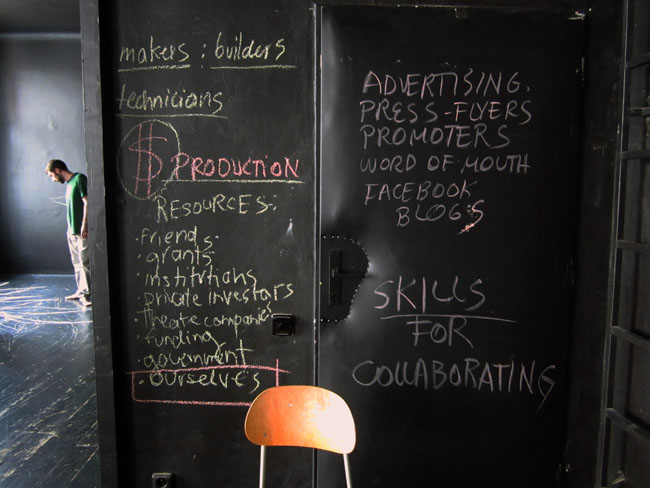 makers : builders
technicians
$ PRODUCTION
RESOURCES:
· friends
· grants
· institutions
· private investors
· theatre companies
· funding
· government
· OURSELVES
ADVERTISING,
PRESS-FLYERS
PROMOTERS
WORD OF MOUTH
FACEBOOK
BLOGS
SKILLS
FOR
COLLABORATING